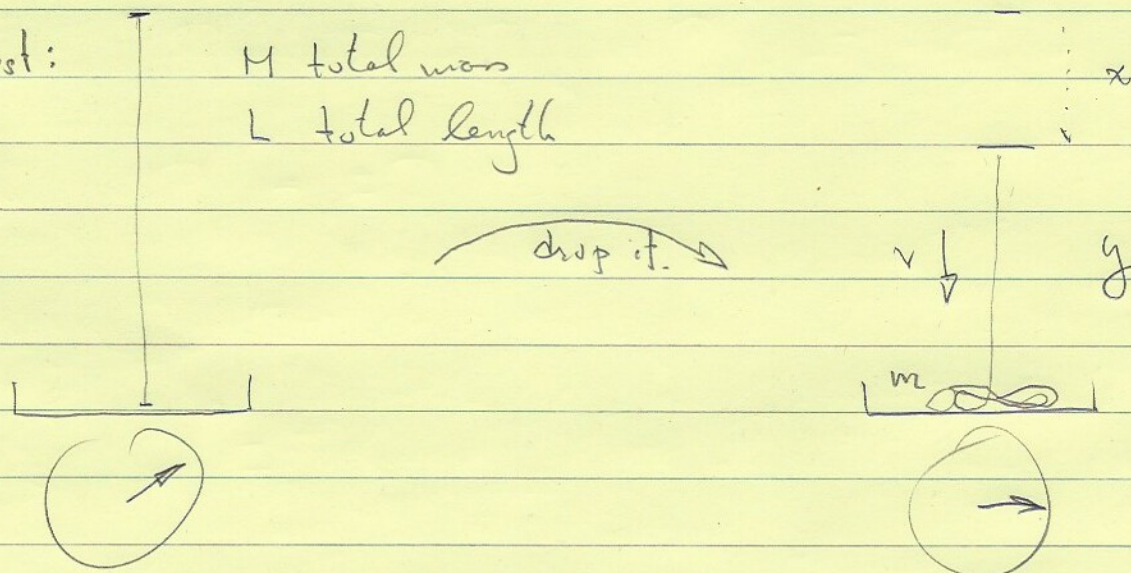 st:
M total mass
L total length
x
drop it.
v
y
m